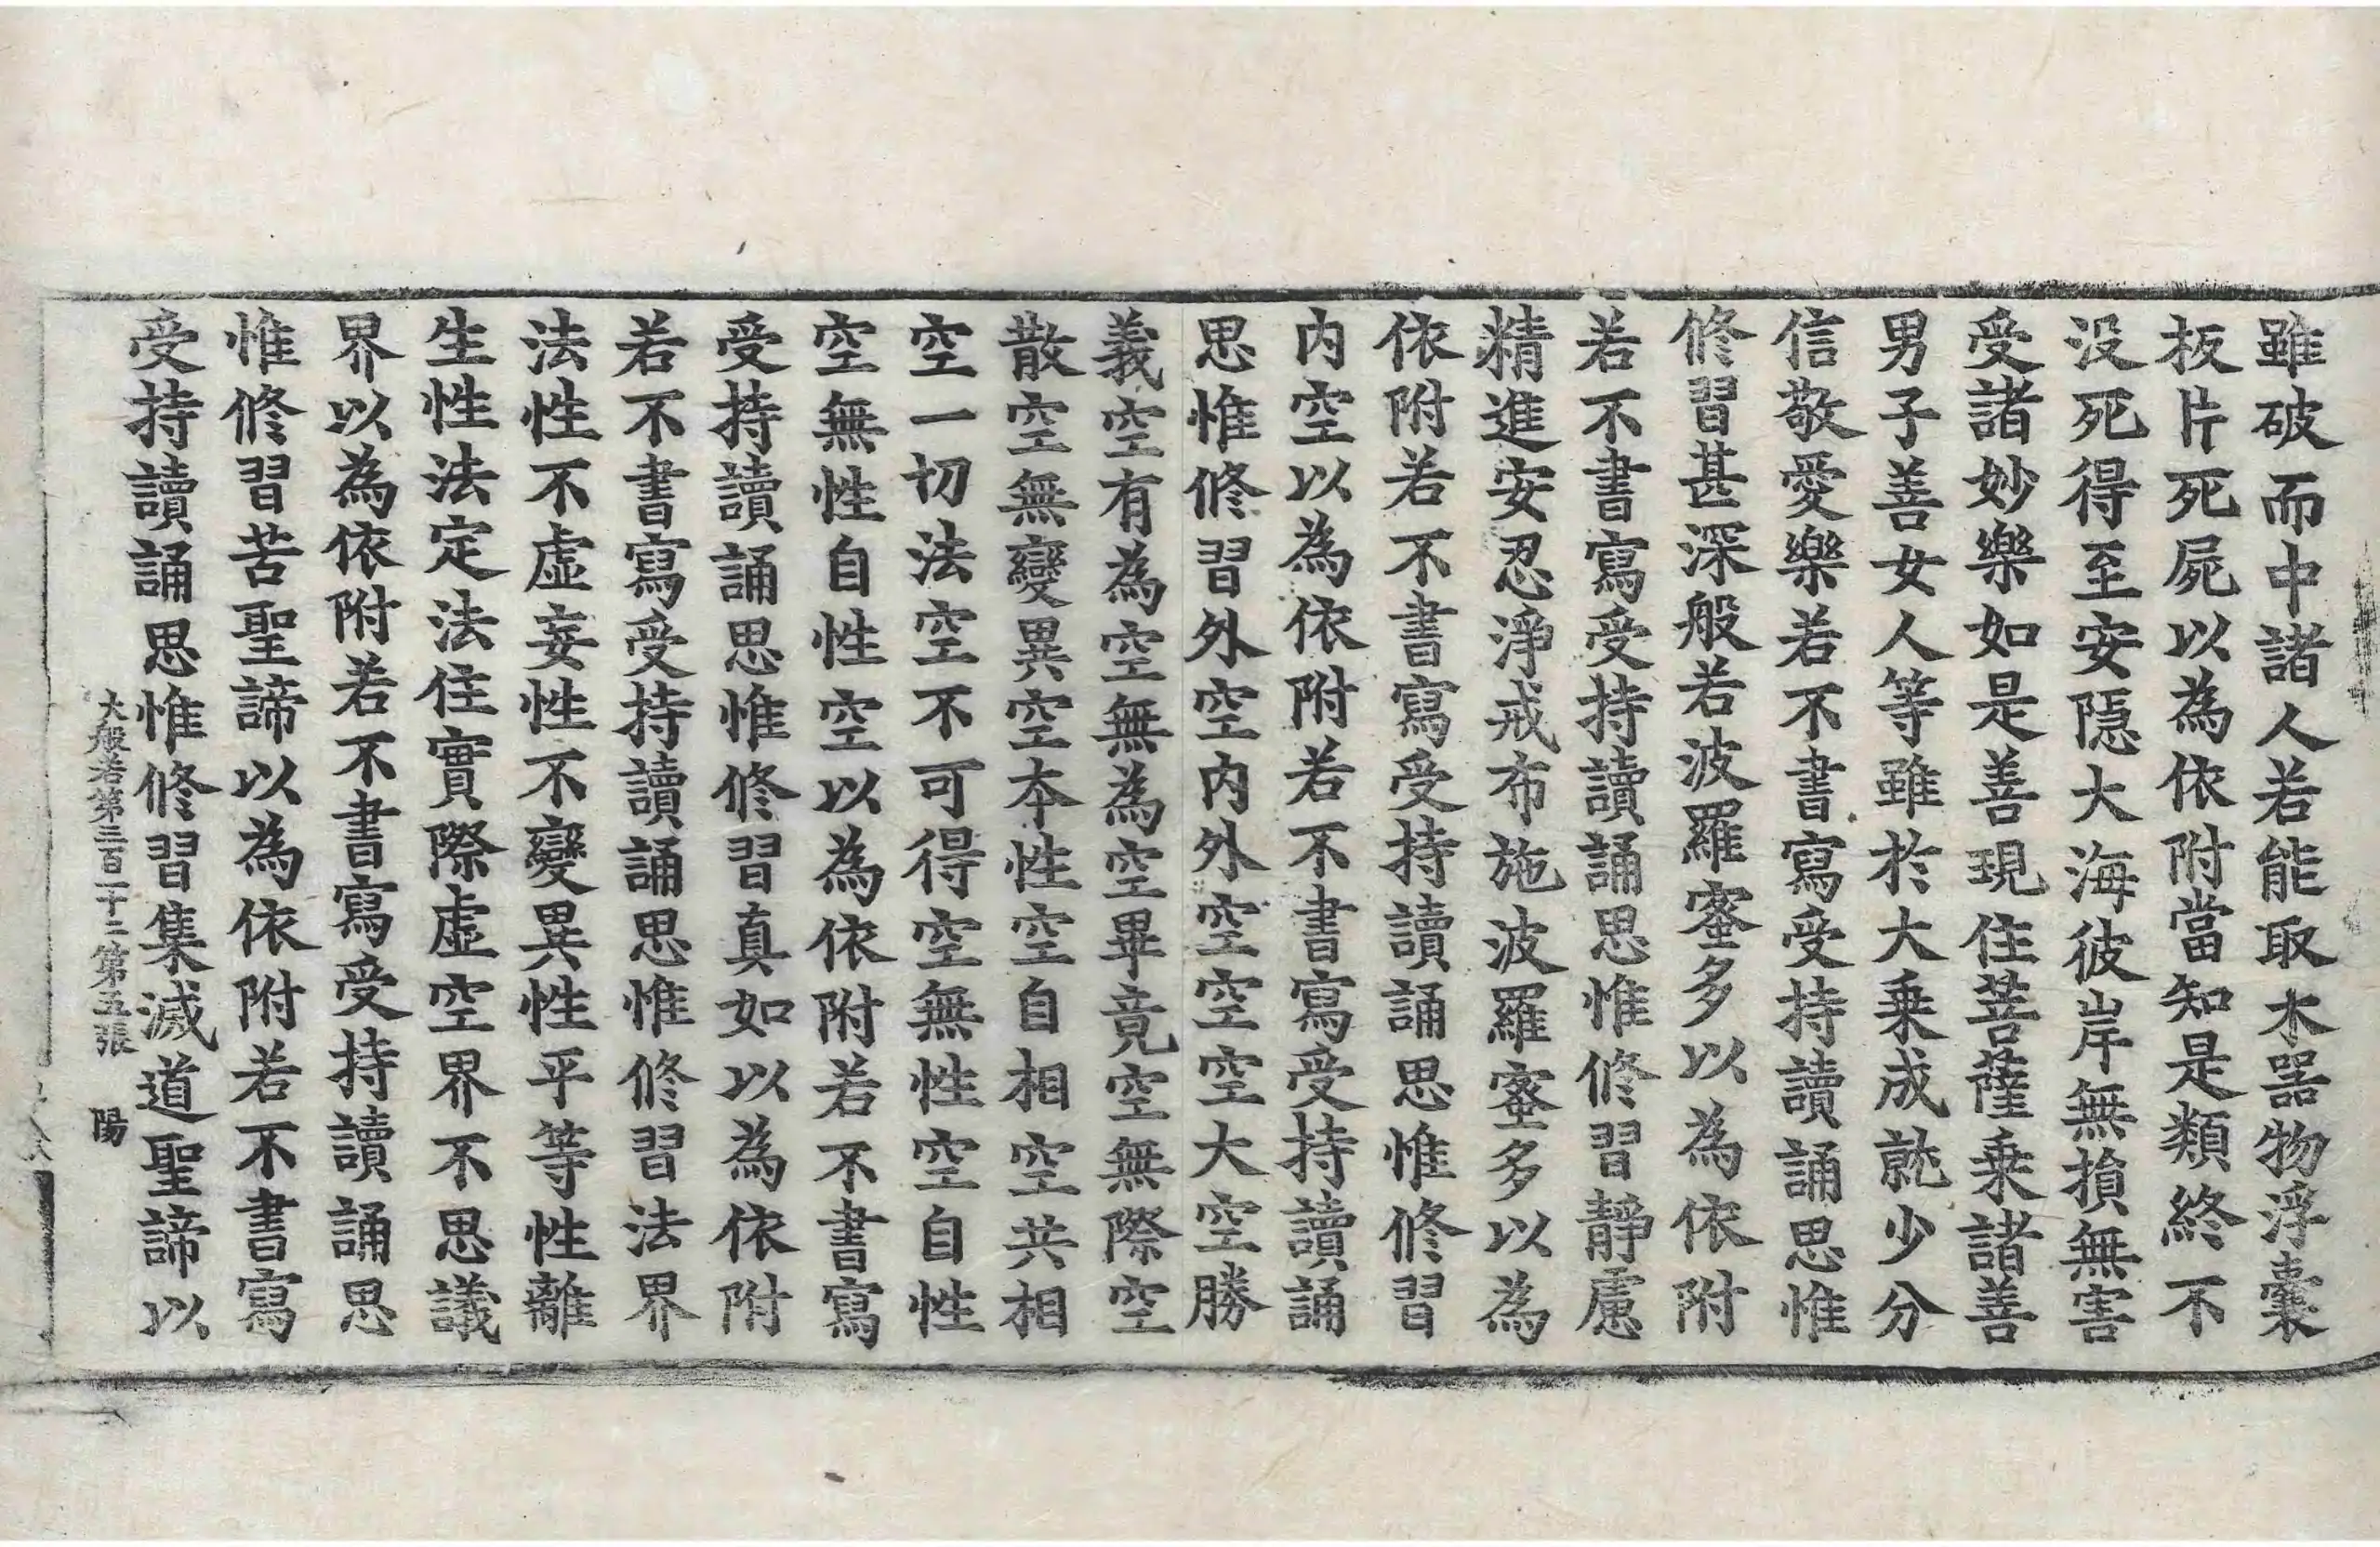 雖破而中諸人若能取木器物浮囊
板片死屍以為依附當知是類終不
没死得至安隱大海彼岸無損無害
受諸妙樂如是善現住菩薩乘諸善
男子善女人等雖於大乘成就少分
信敬愛樂若不書寫受持讀誦思惟
修習甚深般若波羅蜜多以為依附
若不書寫受持讀誦思惟修習靜慮
精進安忍淨戒布施波羅蜜多以為
依附若不書寫受持讀誦思惟修習
内空以為依附若不書寫受持讀誦
思惟修習外空内外空空空大空勝
義空有為空無為空畢竟空無際空
散空無變異空本性空自相空共相
空一切法空不可得空無性空自性
空無性自性空以為依附若不書寫
受持讀誦思惟修習真如以為依附
若不書寫受持讀誦思惟修習法界
法性不虛妄性不變異性平等性離
生性法定法住實際虛空界不思議
界以為依附若不書寫受持讀誦思
惟修習苦聖諦以為依附若不書寫
受持讀誦思惟修習集滅道聖諦以
大般若第三百一十二第五張 陽